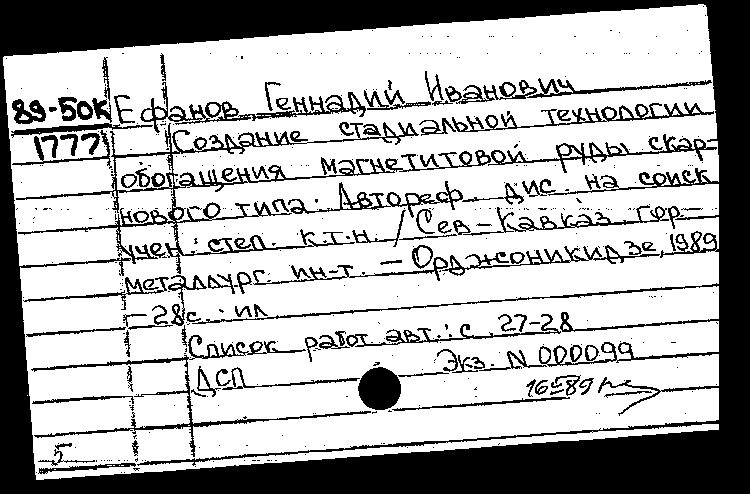 89-50К Ефанов Геннадий Иванович
1777 Создание стадиальной технологии
обогащения магнетитовой руды скар-
нового типа: Автореф. дис. на соиск
учен. степ. к.т.н. / Сев-Кавказ. гор-
металлург. ин-т. — Орджоникидзе, 1989
— 28с.: ил
Список работ авт.: с. 27-28
ДСП Экз. N 000099
5